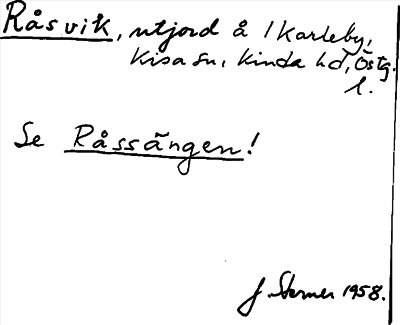 Råsvik, utjord å 1 Karleby,
Kisa sn, Kinda hd, Östg.
l.
Se Råssängen!
J. Sterner 1958.